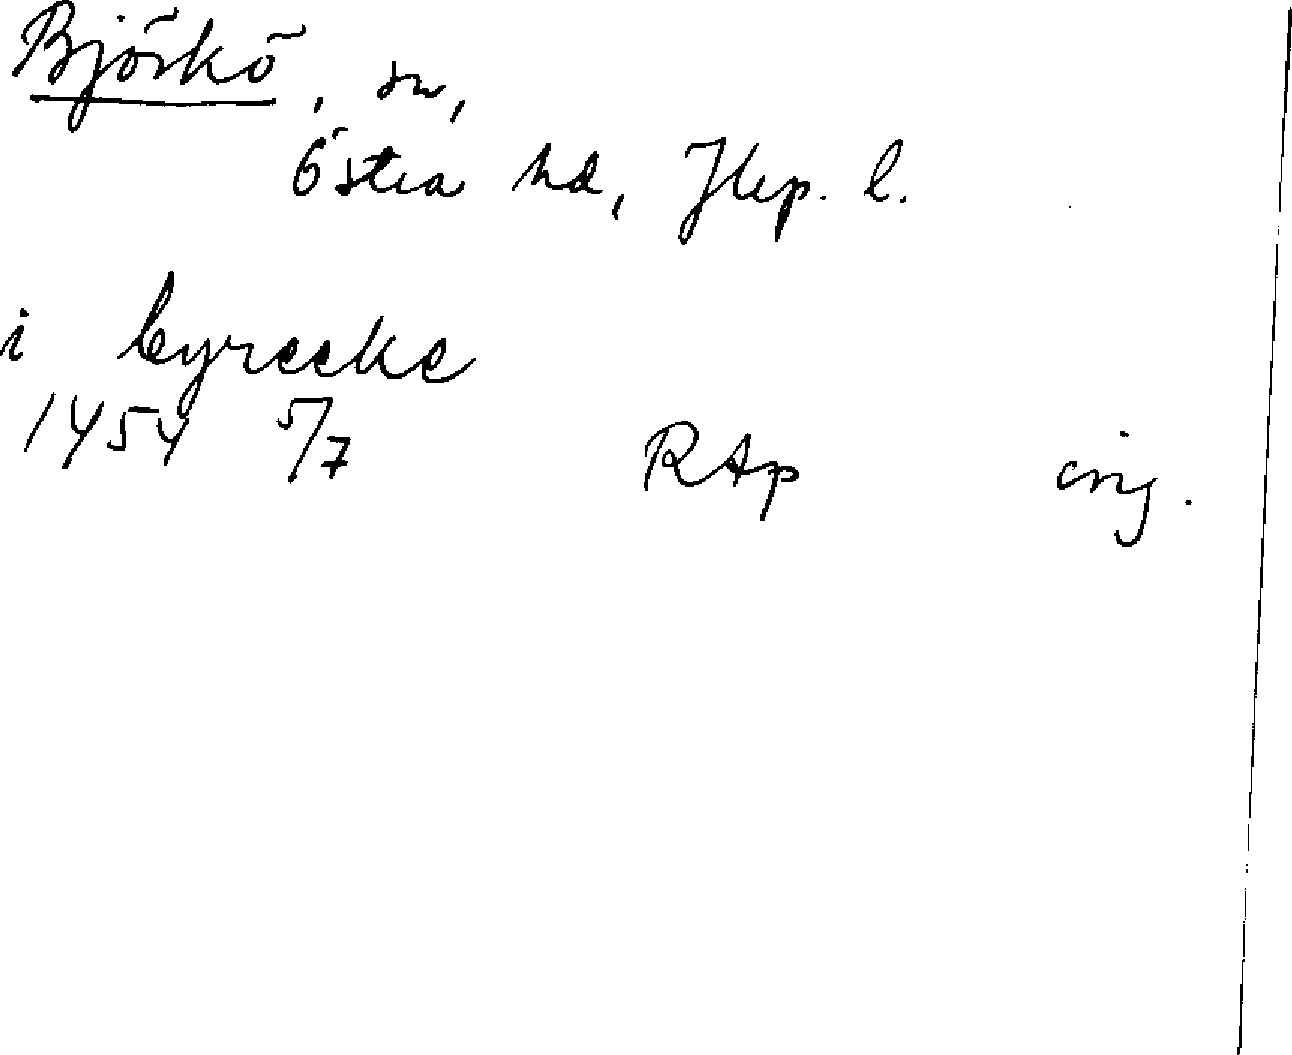 Björkö, sn,
Östra hd, Jkp. l.
i byrecke
1454 5/7 RAp orig.